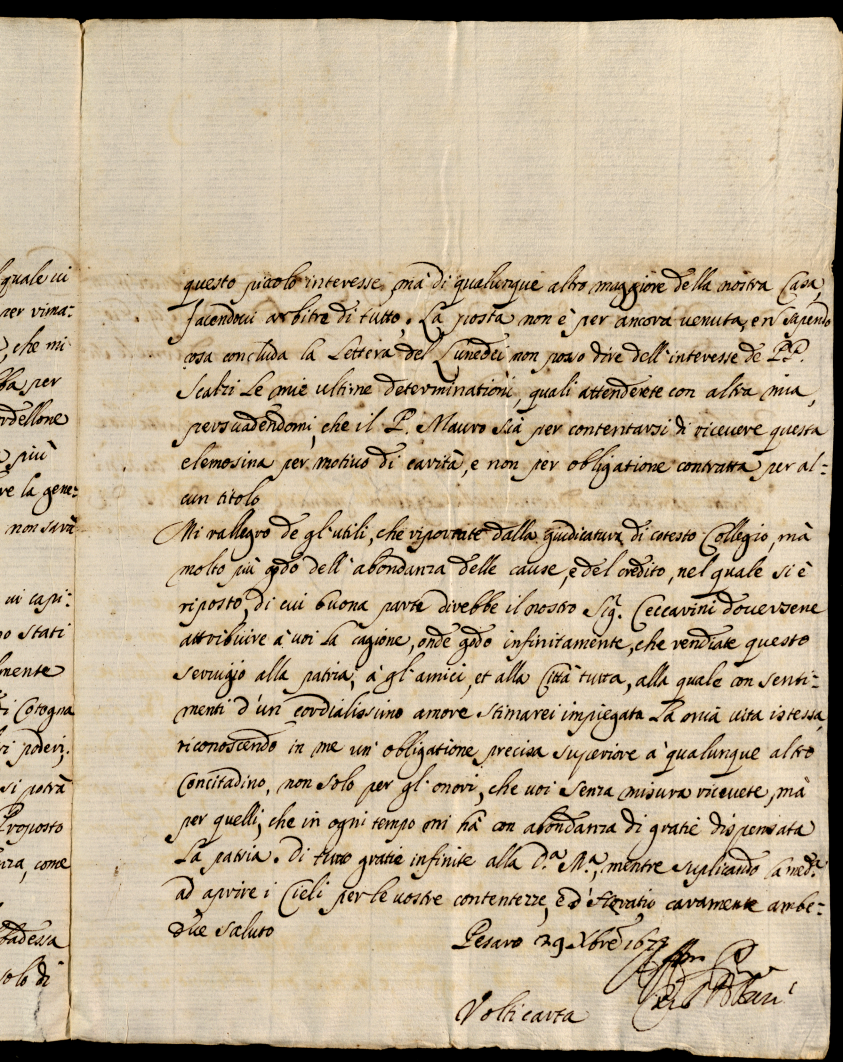 quale vi
per rima:
, che mi
per
ardellone
più
re la gene:
non sarà
vi capi:
stati
mente
di Cotogna
poderi;
si potrà
Proposto
come
badessa
solo di
questo picolo interesse, mà di qualunque altro maggiore della nostra Casa,
facendovi arbitre di tutto. La posta non è per ancora venuta, e n̄ sapendo
cosa concluda la Lettera del Lunedei non posso dire dell'interesse de P.P.
Scalzi Le mie ultime determinationi, quali attenderete con altra mia,
persuadendomi, che il P. Mauro sia per contentarsi di ricevere questa
elemosina per motivo di carità, e non per obligatione contratta per al:
cun titolo
Mi rallegro de gl'utili, che riportate dalla giudicatura di cotesto Collegio, mà
molto più godo dell'abondanza delle cause, e del credito, nel quale si è
riposto, di cui buona parte direbbe il nostro Sig.r Ceccarini doversene
attribuire à voi La cagione, onde godo infinitamente, che rendiate questo
servigio alla patria, à gl'amici, et alla Città tutta, alla quale con senti:
menti d'un cordialissimo amore stimarei impiegata La mia vita istessa,
riconoscendo in me un'obligatione precisa superiore à qualunque altro
Concitadino, non solo per gl'onori, che voi senza misura ricevete, mà
per quelli, che in ogni tempo mi hà con abondanza di gratie dispensata
La patria. Di tutto gratie infinite alla D.a M.a, mentre suplicando la med.a
ad aprire i Cieli per le vostre contentezze, e d'Horatio caramente ambe:
due saluto
Pesaro 29 Xbre 1673
Aff.mo
Volti carta